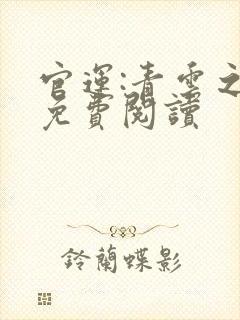 官運:青雲之
免費閱讀
鈴蘭蝶影